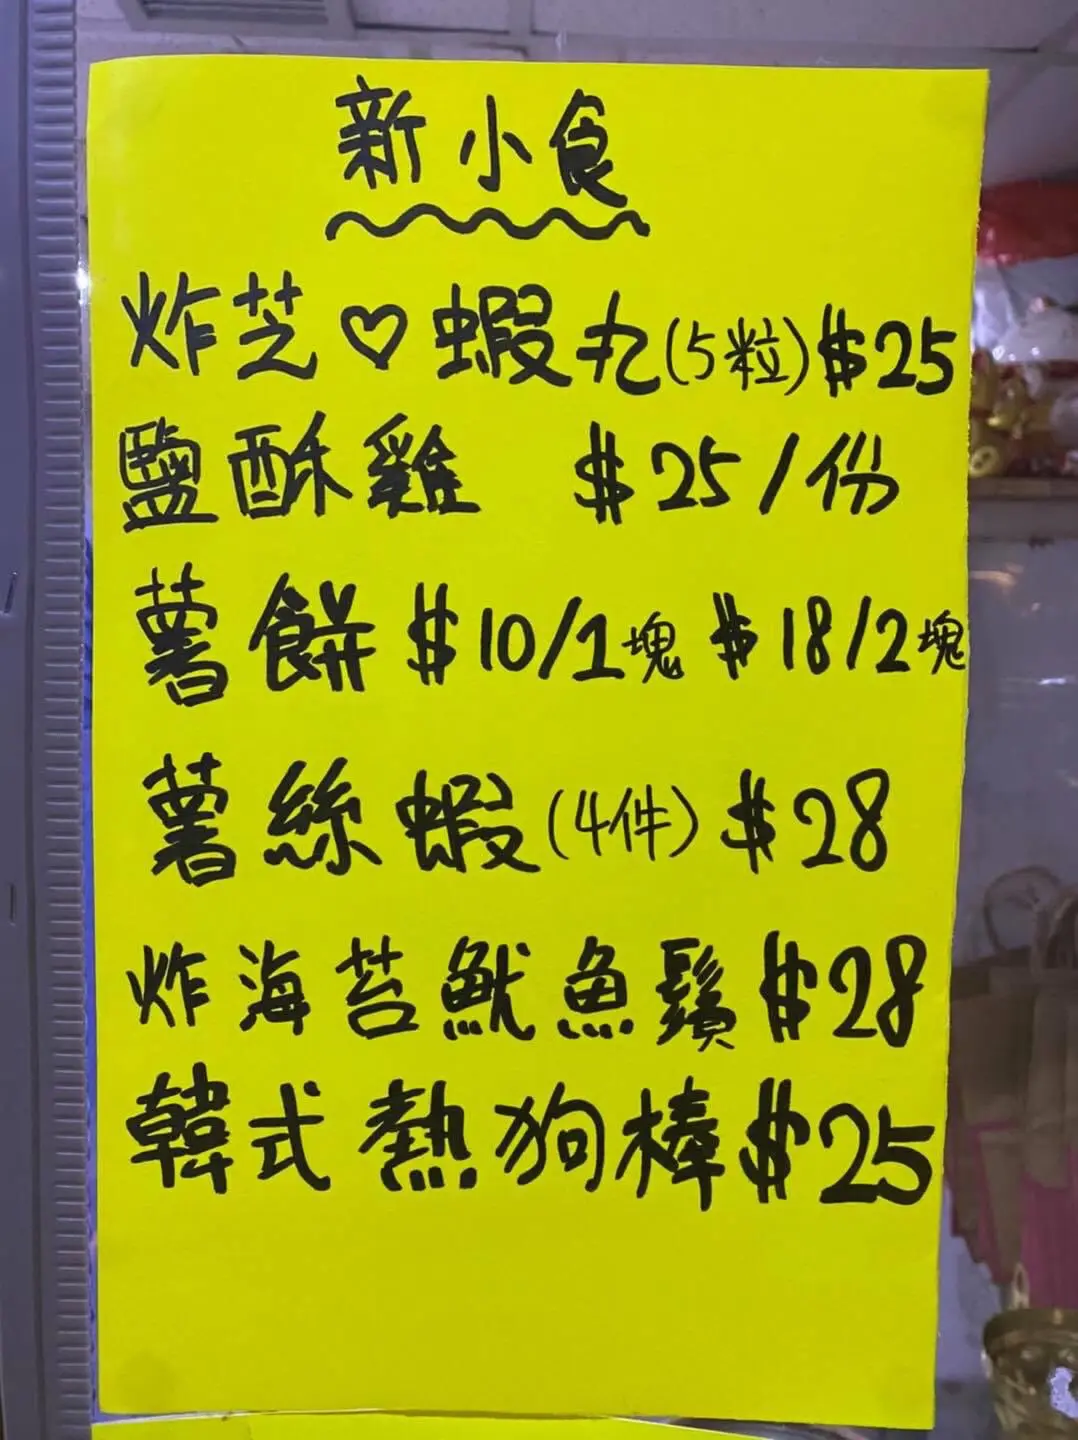 新小食
炸芝♡蝦丸(5粒)$25
鹽酥雞 $25/份
薯餅 $10/1塊 $18/2塊
薯絲蝦(4件) $28
炸海苔魷魚鬚 $28
韓式熱狗棒 $25